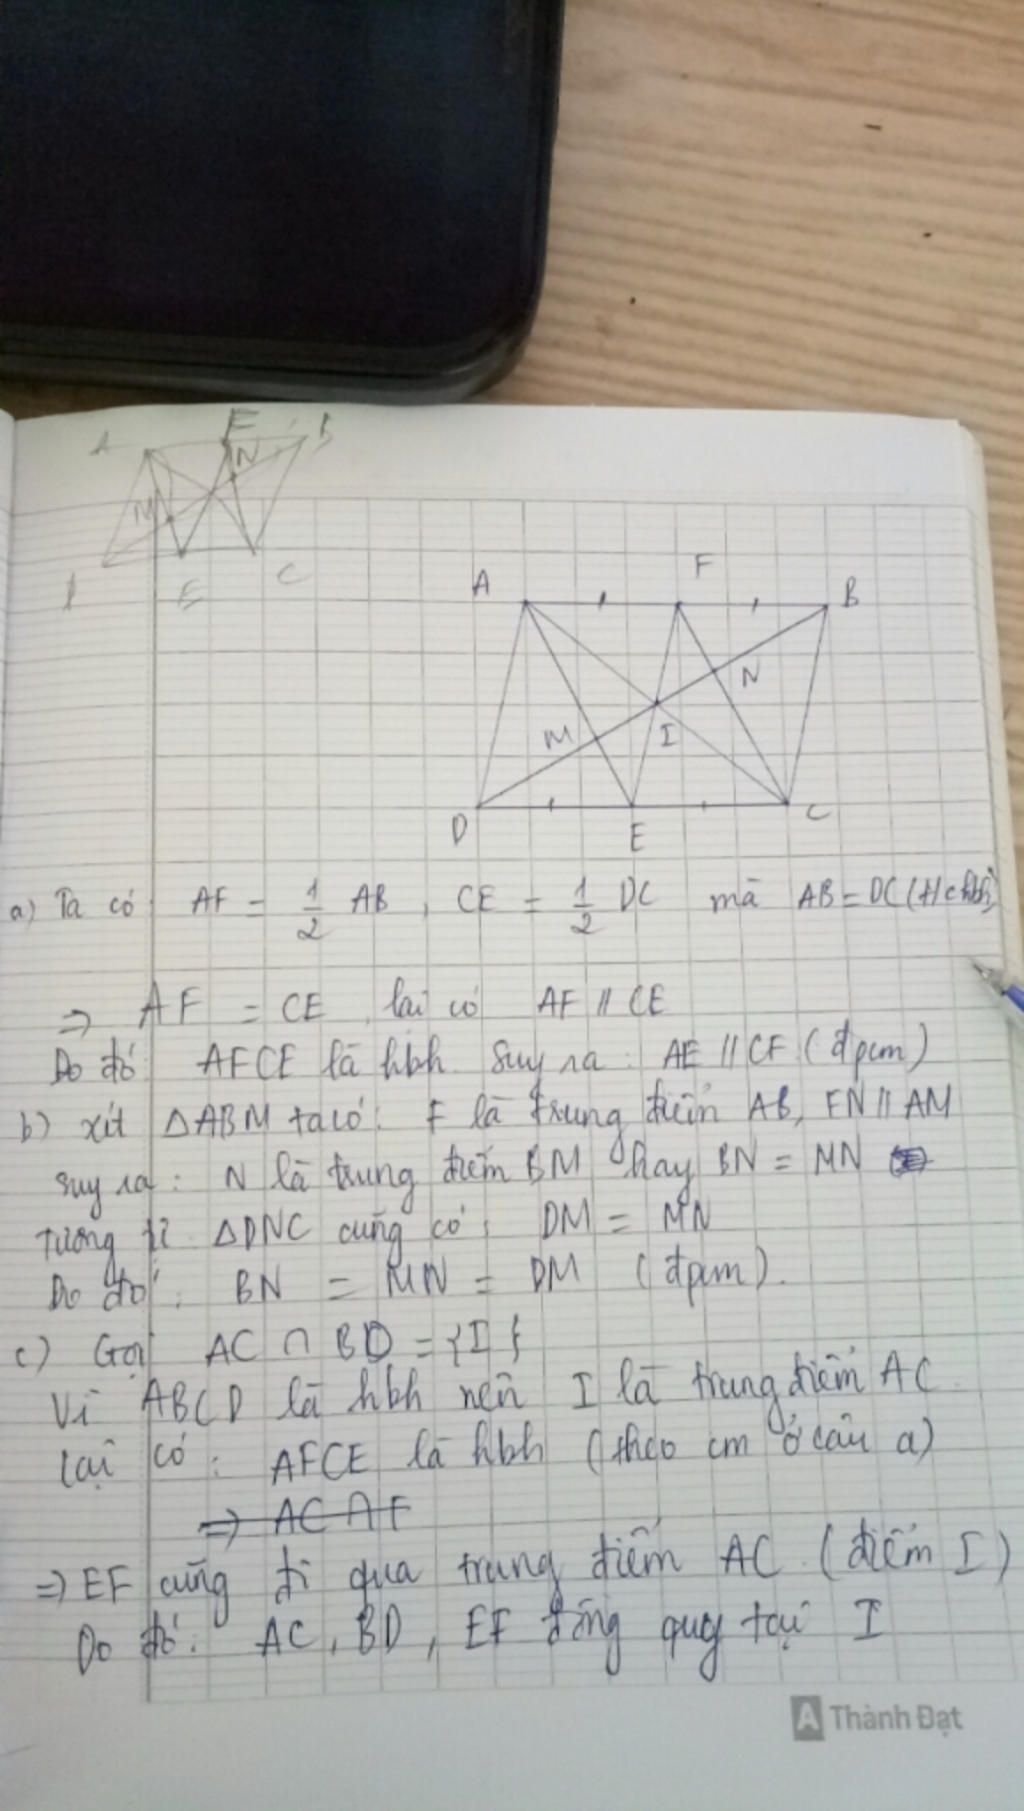 A F B
N
M
D E C
A F B
N
M I
D E C
a) Ta có AF = 1/2 AB, CE = 1/2 DC mà AB = DC (t/c hbh)
⇒ AF = CE lại có AF // CE
Do đó AFCE là hbh. Suy ra: AE // CF (đpcm)
b) xét ΔABM ta có: F là trung điểm AB, FN // AM
suy ra: N là trung điểm BM hay BN = MN
tương tự ΔDNC cũng có: DM = MN
Do đó: BN = MN = DM (đpcm).
c) Gọi AC ∩ BD = {I}
Vì ABCD là hbh nên I là trung điểm AC.
lại có: AFCE là hbh (theo cm ở câu a)
⇒ AC ∩ F
⇒ EF cũng đi qua trung điểm AC. (điểm I)
Do đó: AC, BD, EF đồng quy tại I
A Thành Đạt